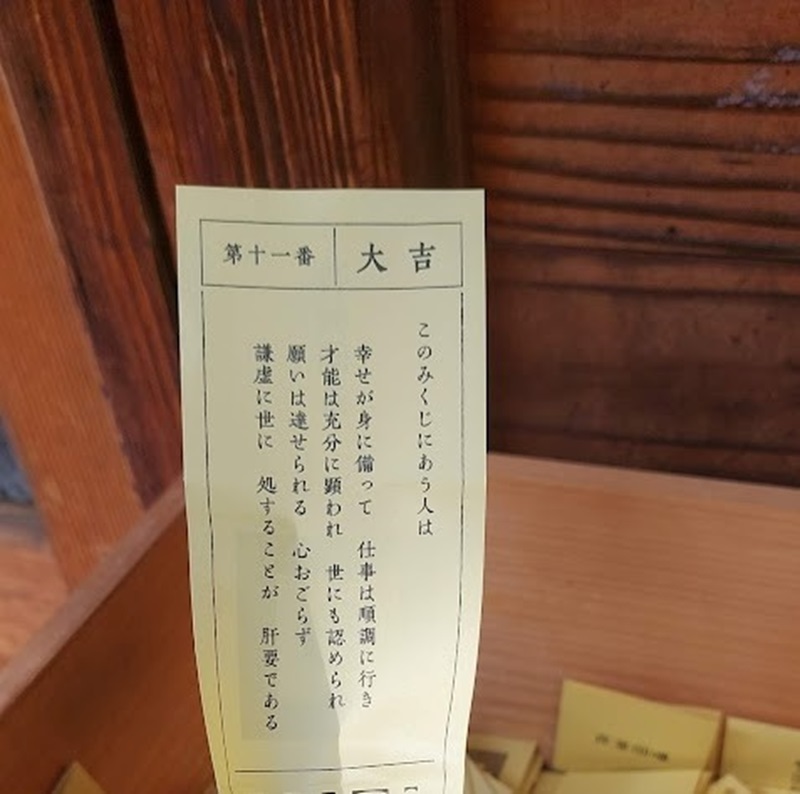 大吉
第十一番
このみくじにあう人は
幸せが身に備って 仕事は順調に行き
才能は充分に顕われ 世にも認められ
願いは達せられる 心おごらず
謙虚に世に 処することが 肝要である